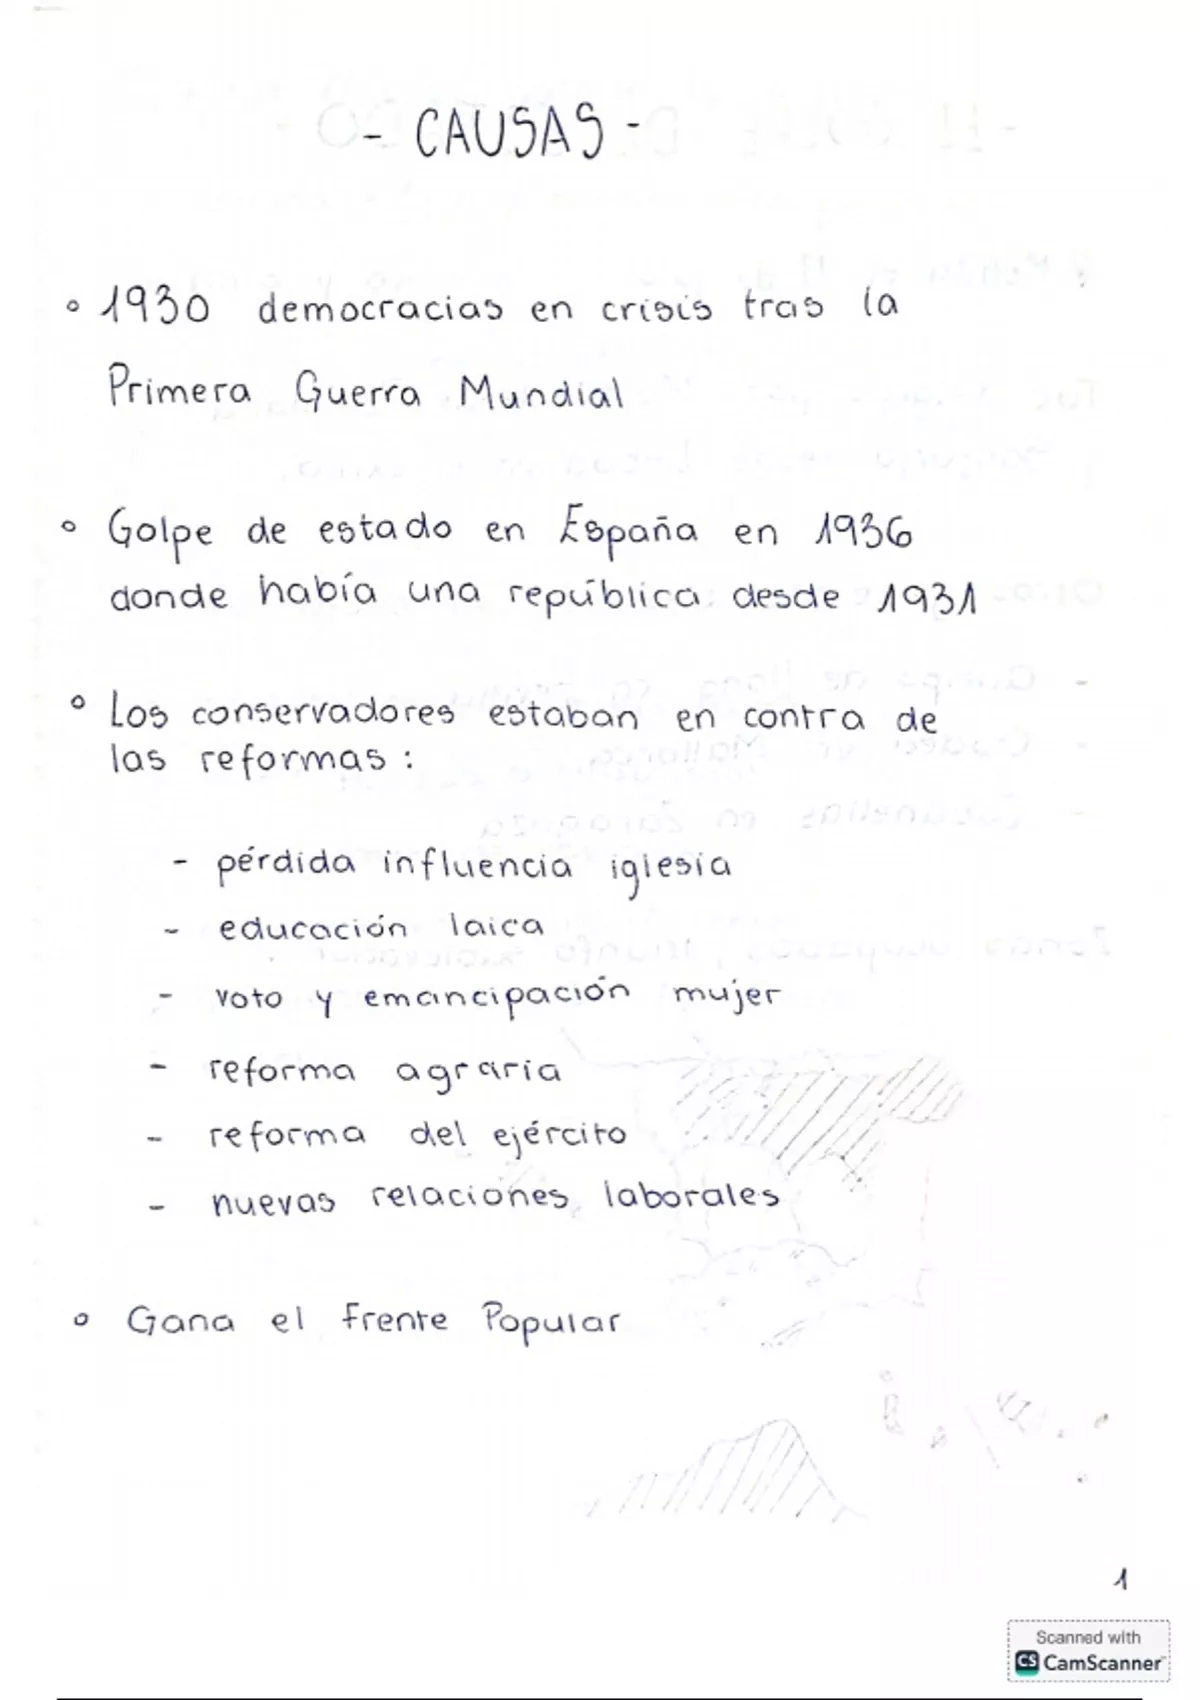 - CAUSAS -
° 1930 democracias en crisis tras la
Primera Guerra Mundial
° Golpe de estado en España en 1936
donde había una república desde 1931
° Los conservadores estaban en contra de
las reformas :
- pérdida influencia iglesia
- educación laica
- voto y emancipación mujer
- reforma agraria
- reforma del ejército
- nuevas relaciones laborales
° Gana el Frente Popular
1
Scanned with
CS CamScanner